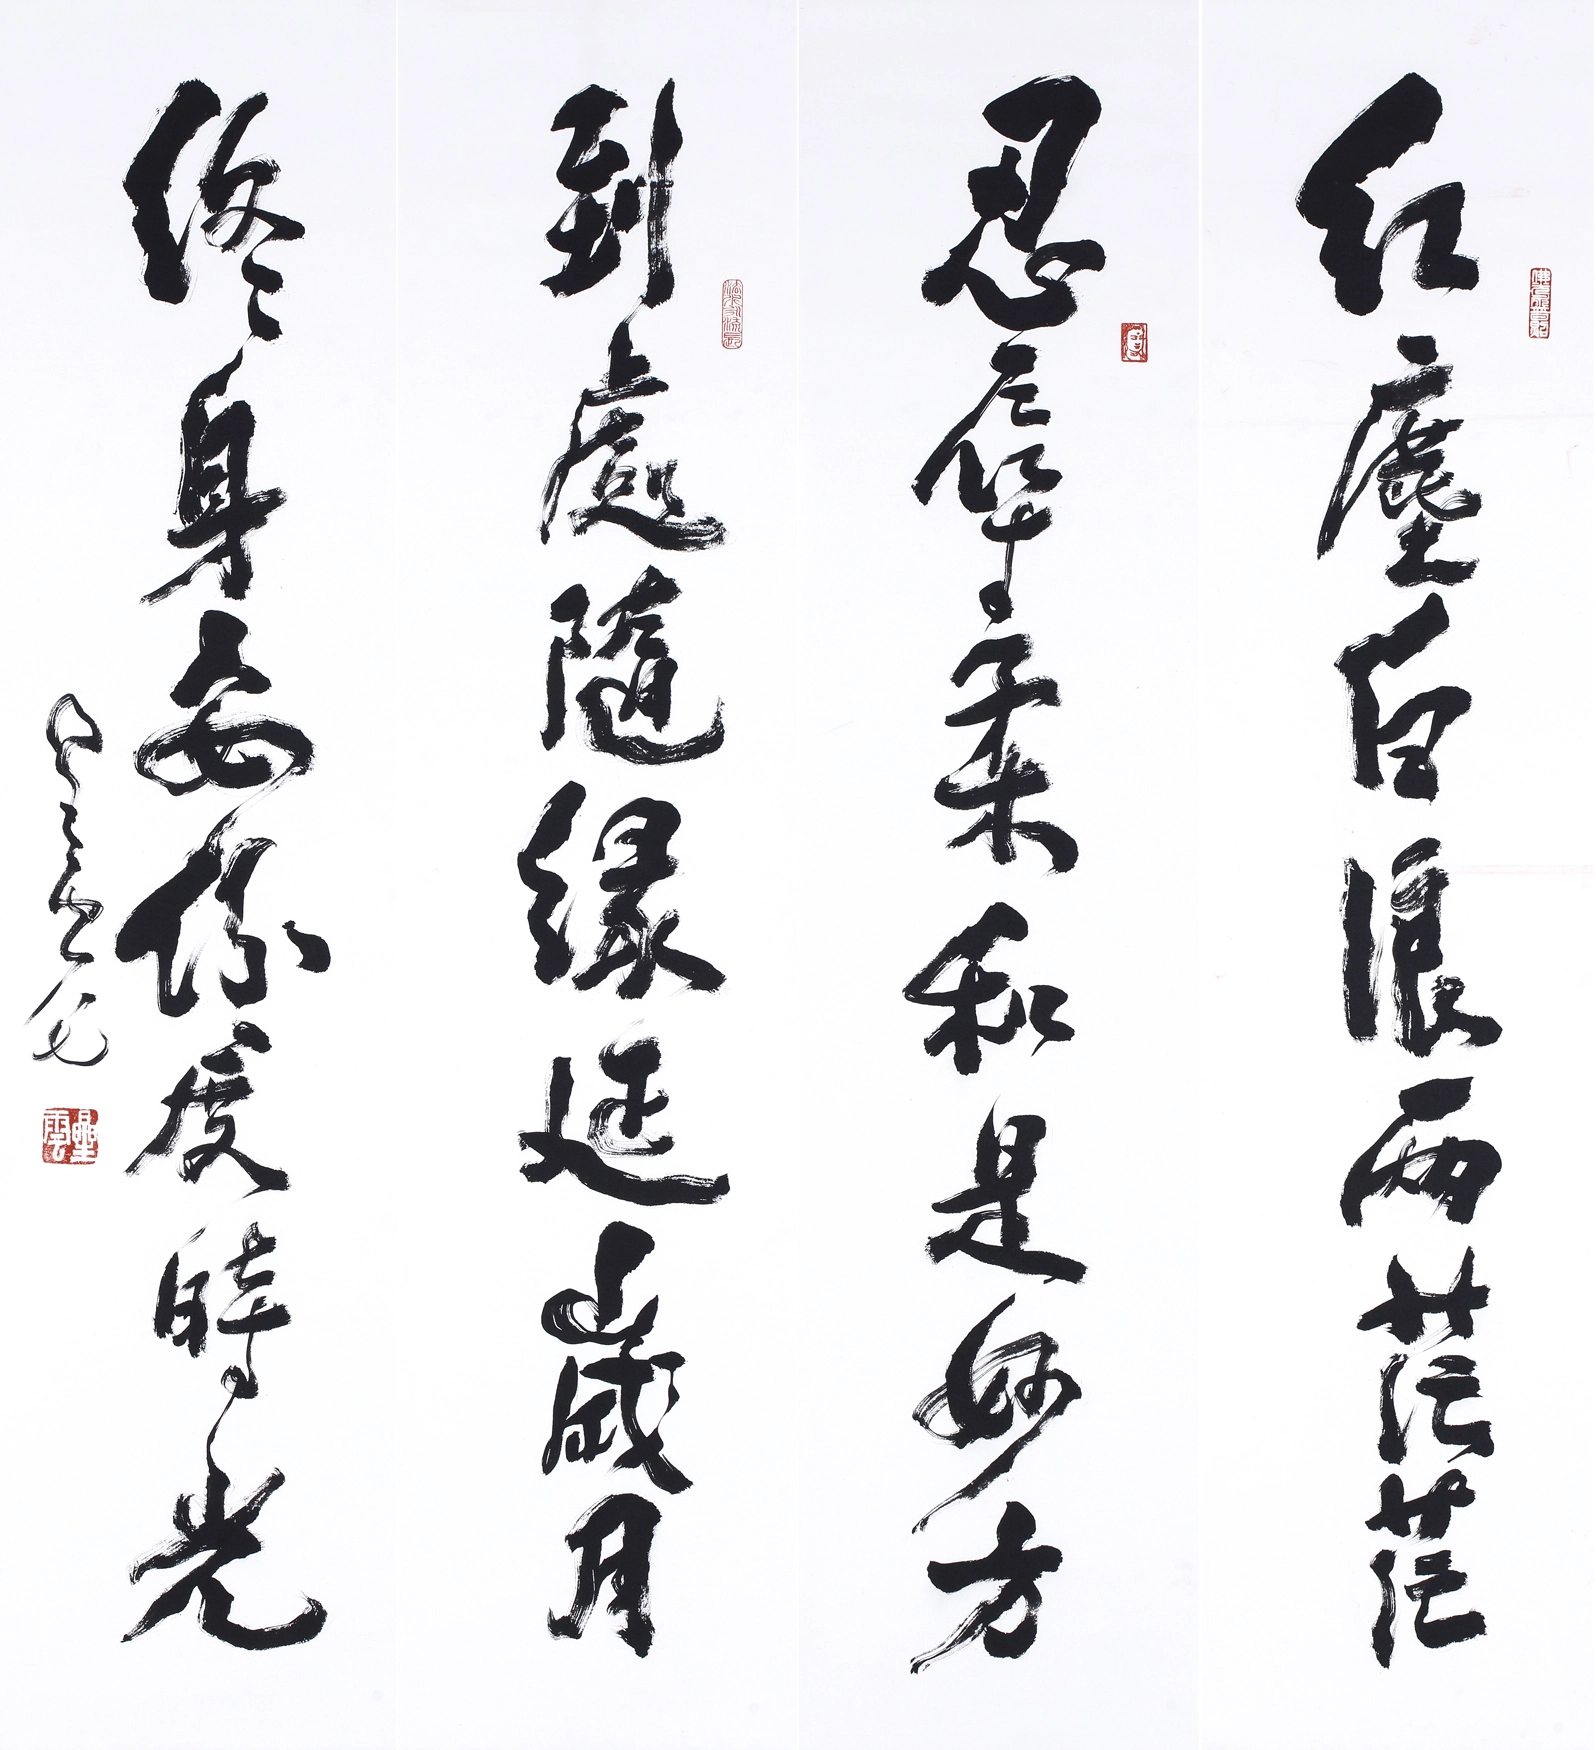 红塵白浪兩茫茫
忍辱柔和是妙方
到處隨緣延歲月
終身安份度時光
星雲